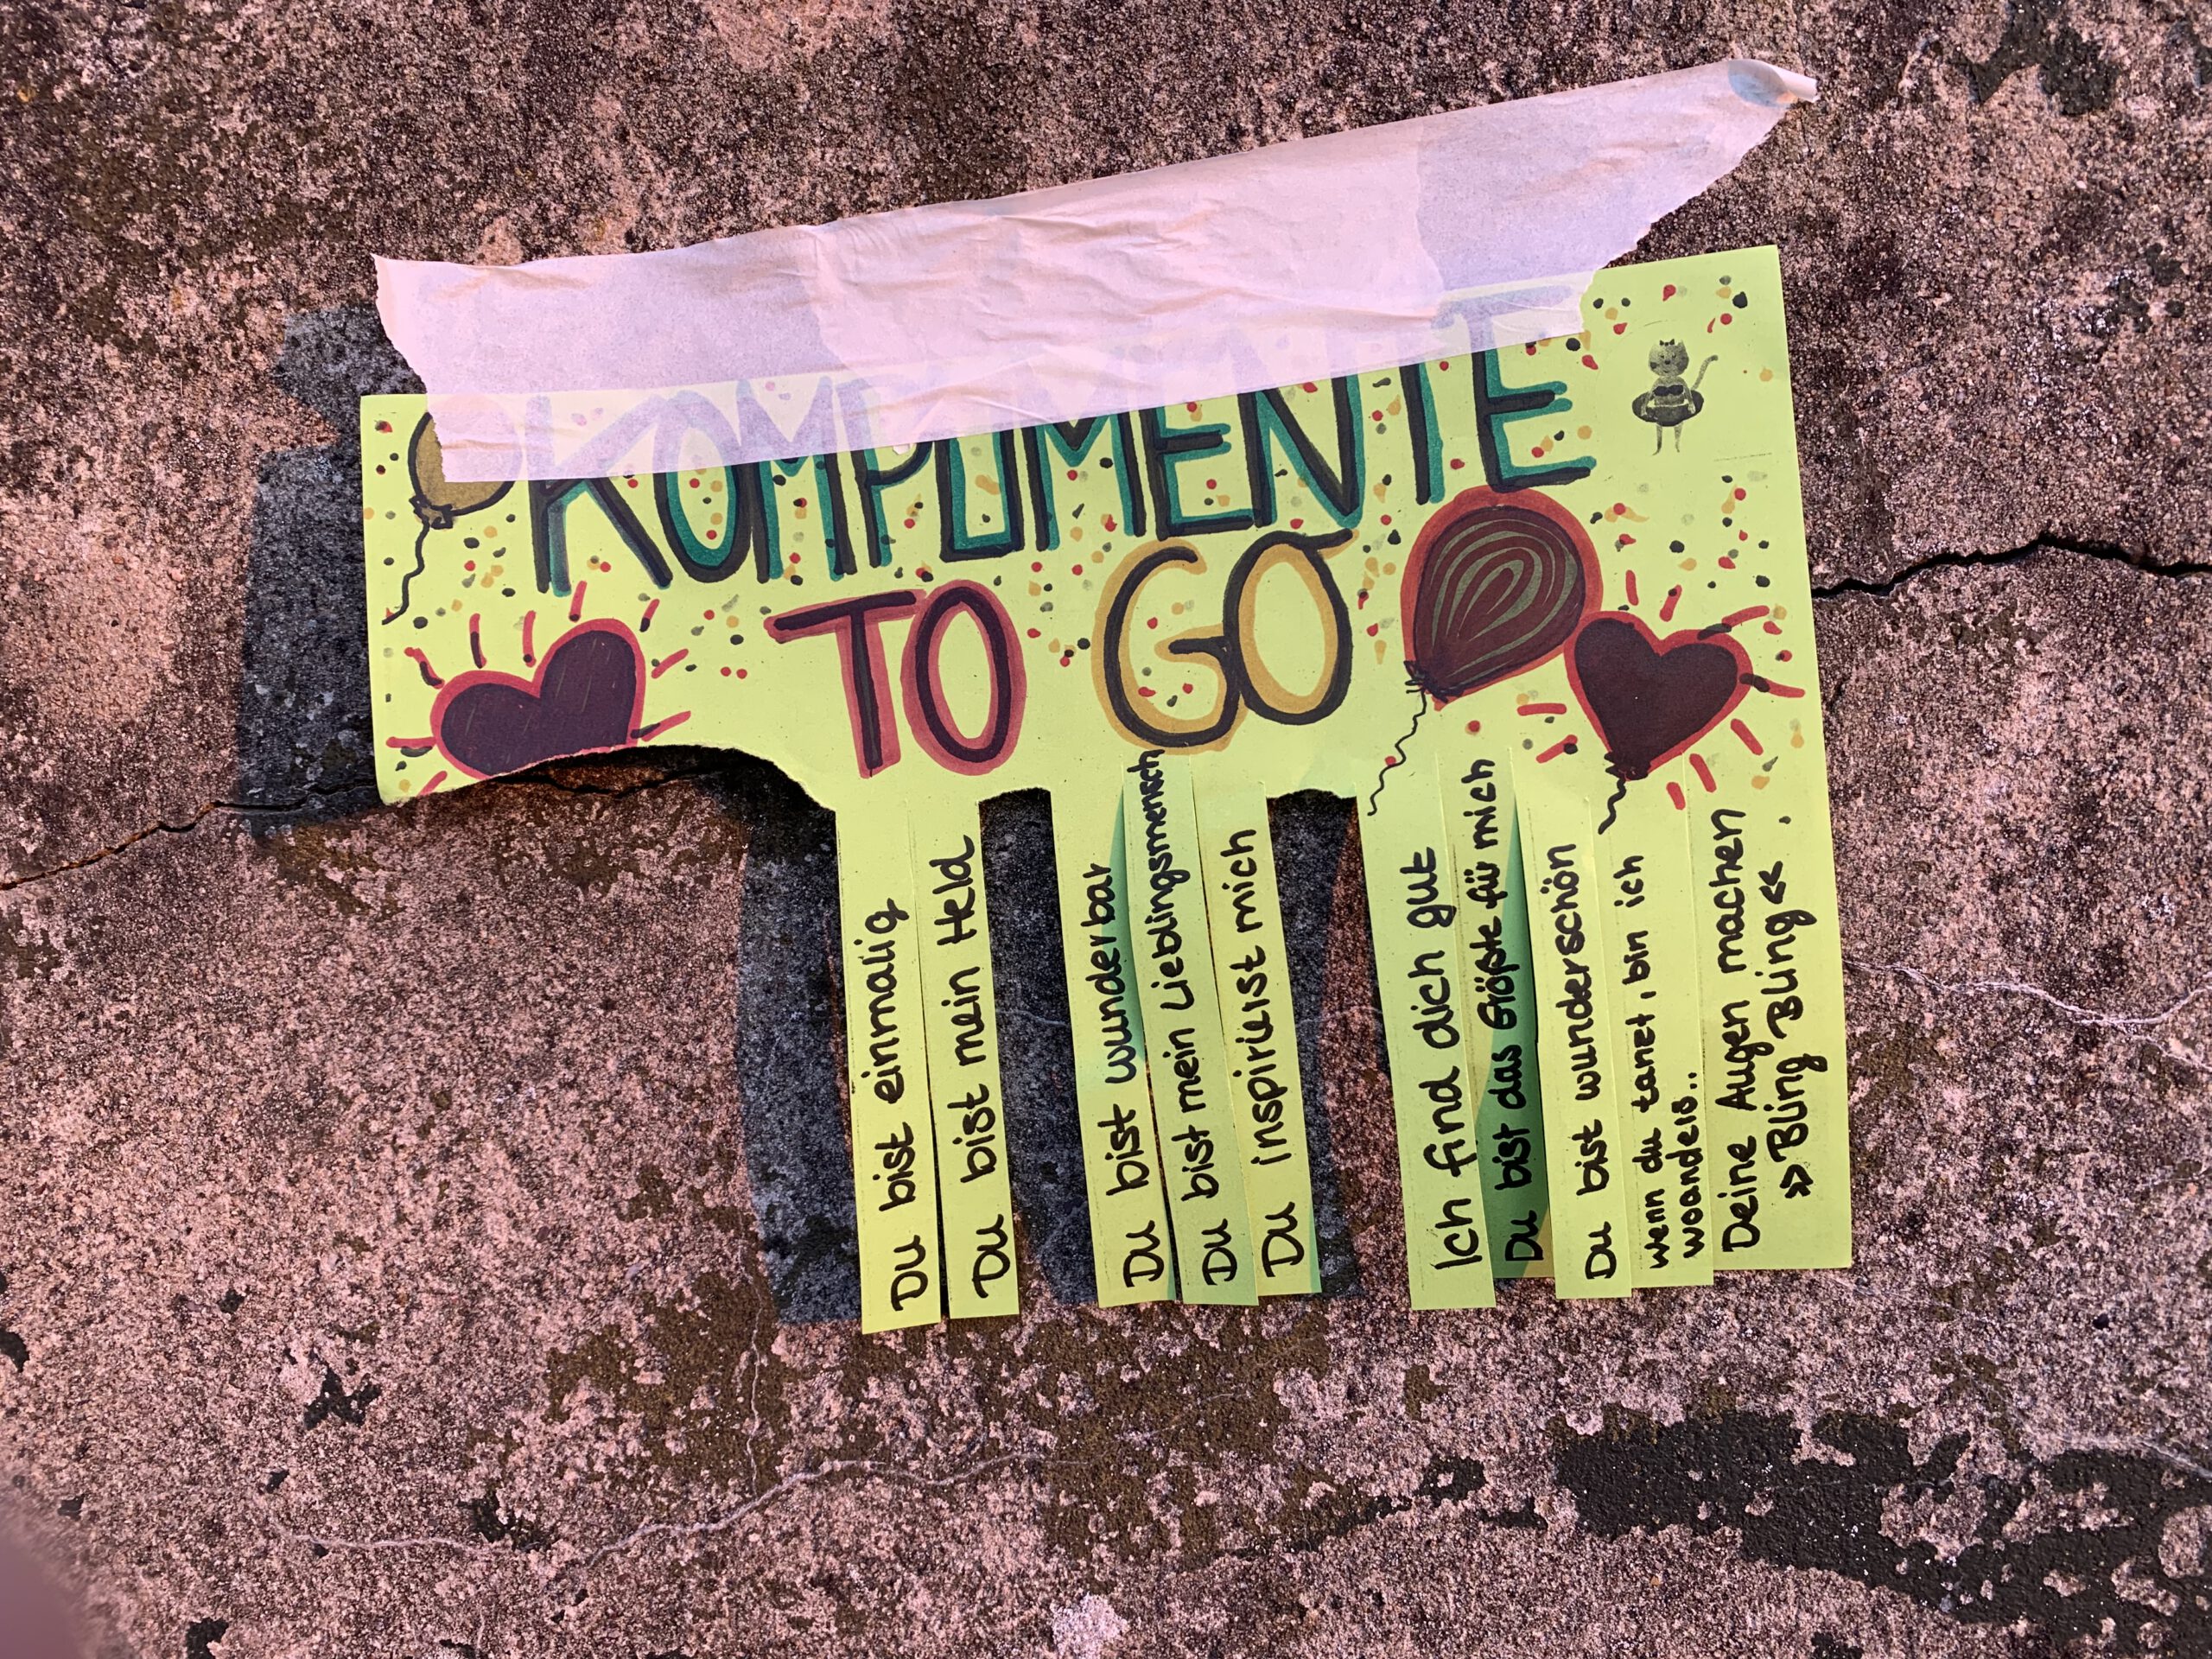 KOMPLIMENTE
TO GO
Du bist einmalig
Du bist mein Held
Du bist wunderbar
Du bist mein Lieblingsmensch
Du inspirierst mich
Ich find dich gut
Du bist das Größte für mich
Du bist wunderschön
wenn du tanzt, bin ich
woanders..
Deine Augen machen
»Bling Bling«.